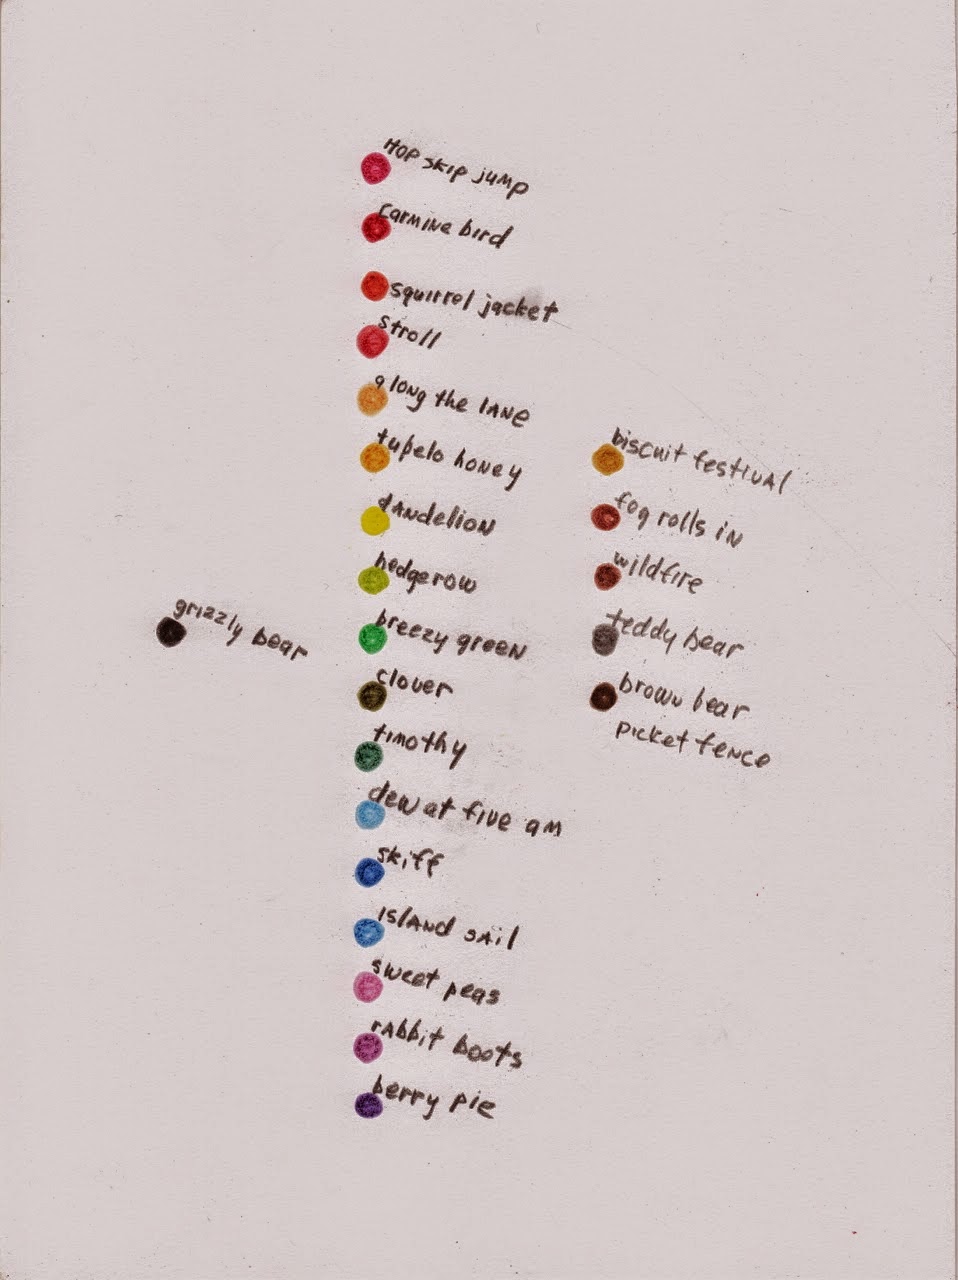 Hop skip jump
carmine bird
squirrel jacket
stroll
along the lane
tupelo honey
dandelion
hedgerow
breezy green
clover
timothy
dew at five am
skiff
island sail
sweet peas
rabbit boots
berry pie
biscuit festival
fog rolls in
wildfire
teddy bear
brown bear
picket fence
grizzly bear